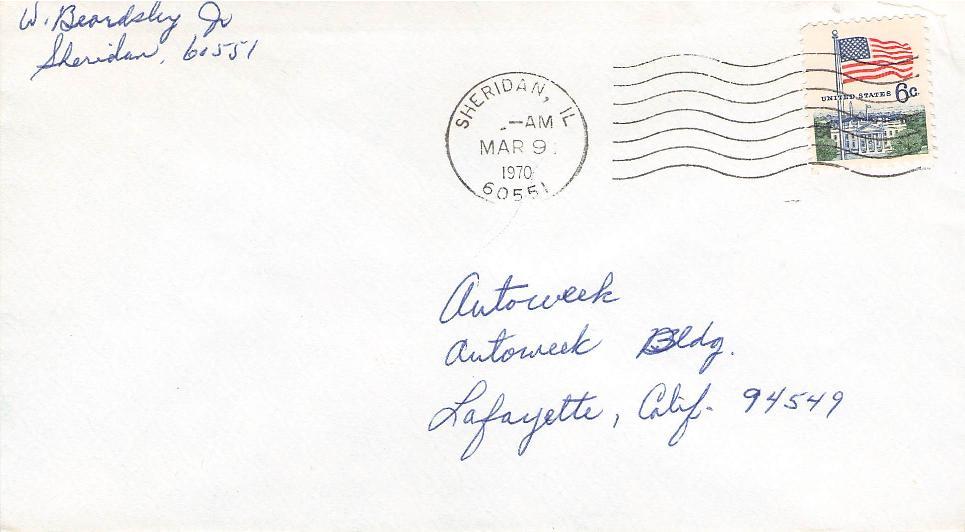 W. Beardsley Jr
Sheridan, 60551
SHERIDAN, IL
AM
MAR 9
1970
60551
UNITED STATES 6c.
Autoweek
Autoweek Bldg.
Lafayette, Calif. 94549